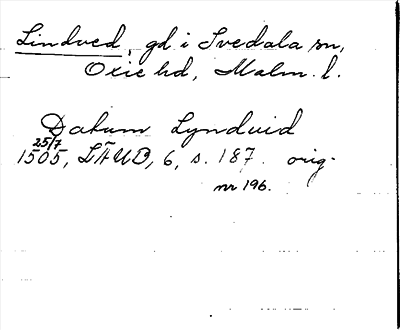 Lindved, gd i Svedala sn,
Oxie hd, Malm. l.
Datum Lyndvid
25/7
1505, LÄUB, 6, s. 187. orig.
nr 196.